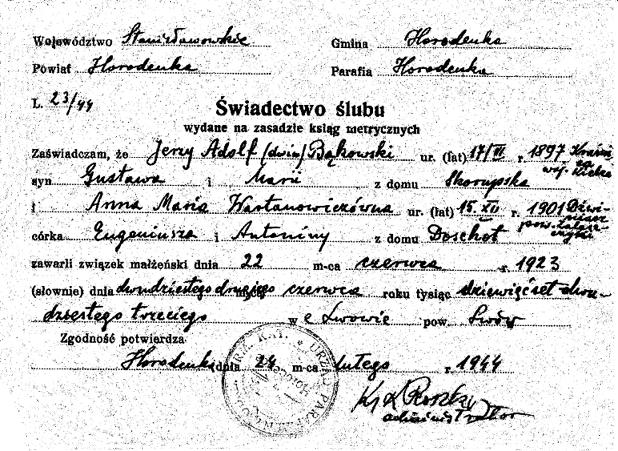 Województwo Stanisławowskie Gmina Horodenka
Powiat Horodenka Parafia Horodenka
L. 23/44
Świadectwo ślubu
wydane na zasadzie ksiąg metrycznych
Zaświadczam, że Jerzy Adolf (dwim) Bąkowski ur. (lat) 17/III r. 1897
syn Gustawa i Marii z domu Skorupska
i Anna Maria Wartanowiczówna ur. (lat) 15. XII r. 1901
córka Eugeniusza i Antoniny z domu
zawarli związek małżeński dnia 22 m-ca czerwca r. 1923
(słownie) dnia dwudziestego drugiego czerwca roku tysiąc dziewięćset dwu-
dziestego trzeciego w e Lwowie pow. Lwów
Zgodność potwierdza
Horodenka dnia 24 m-ca lutego r. 1944
administrator